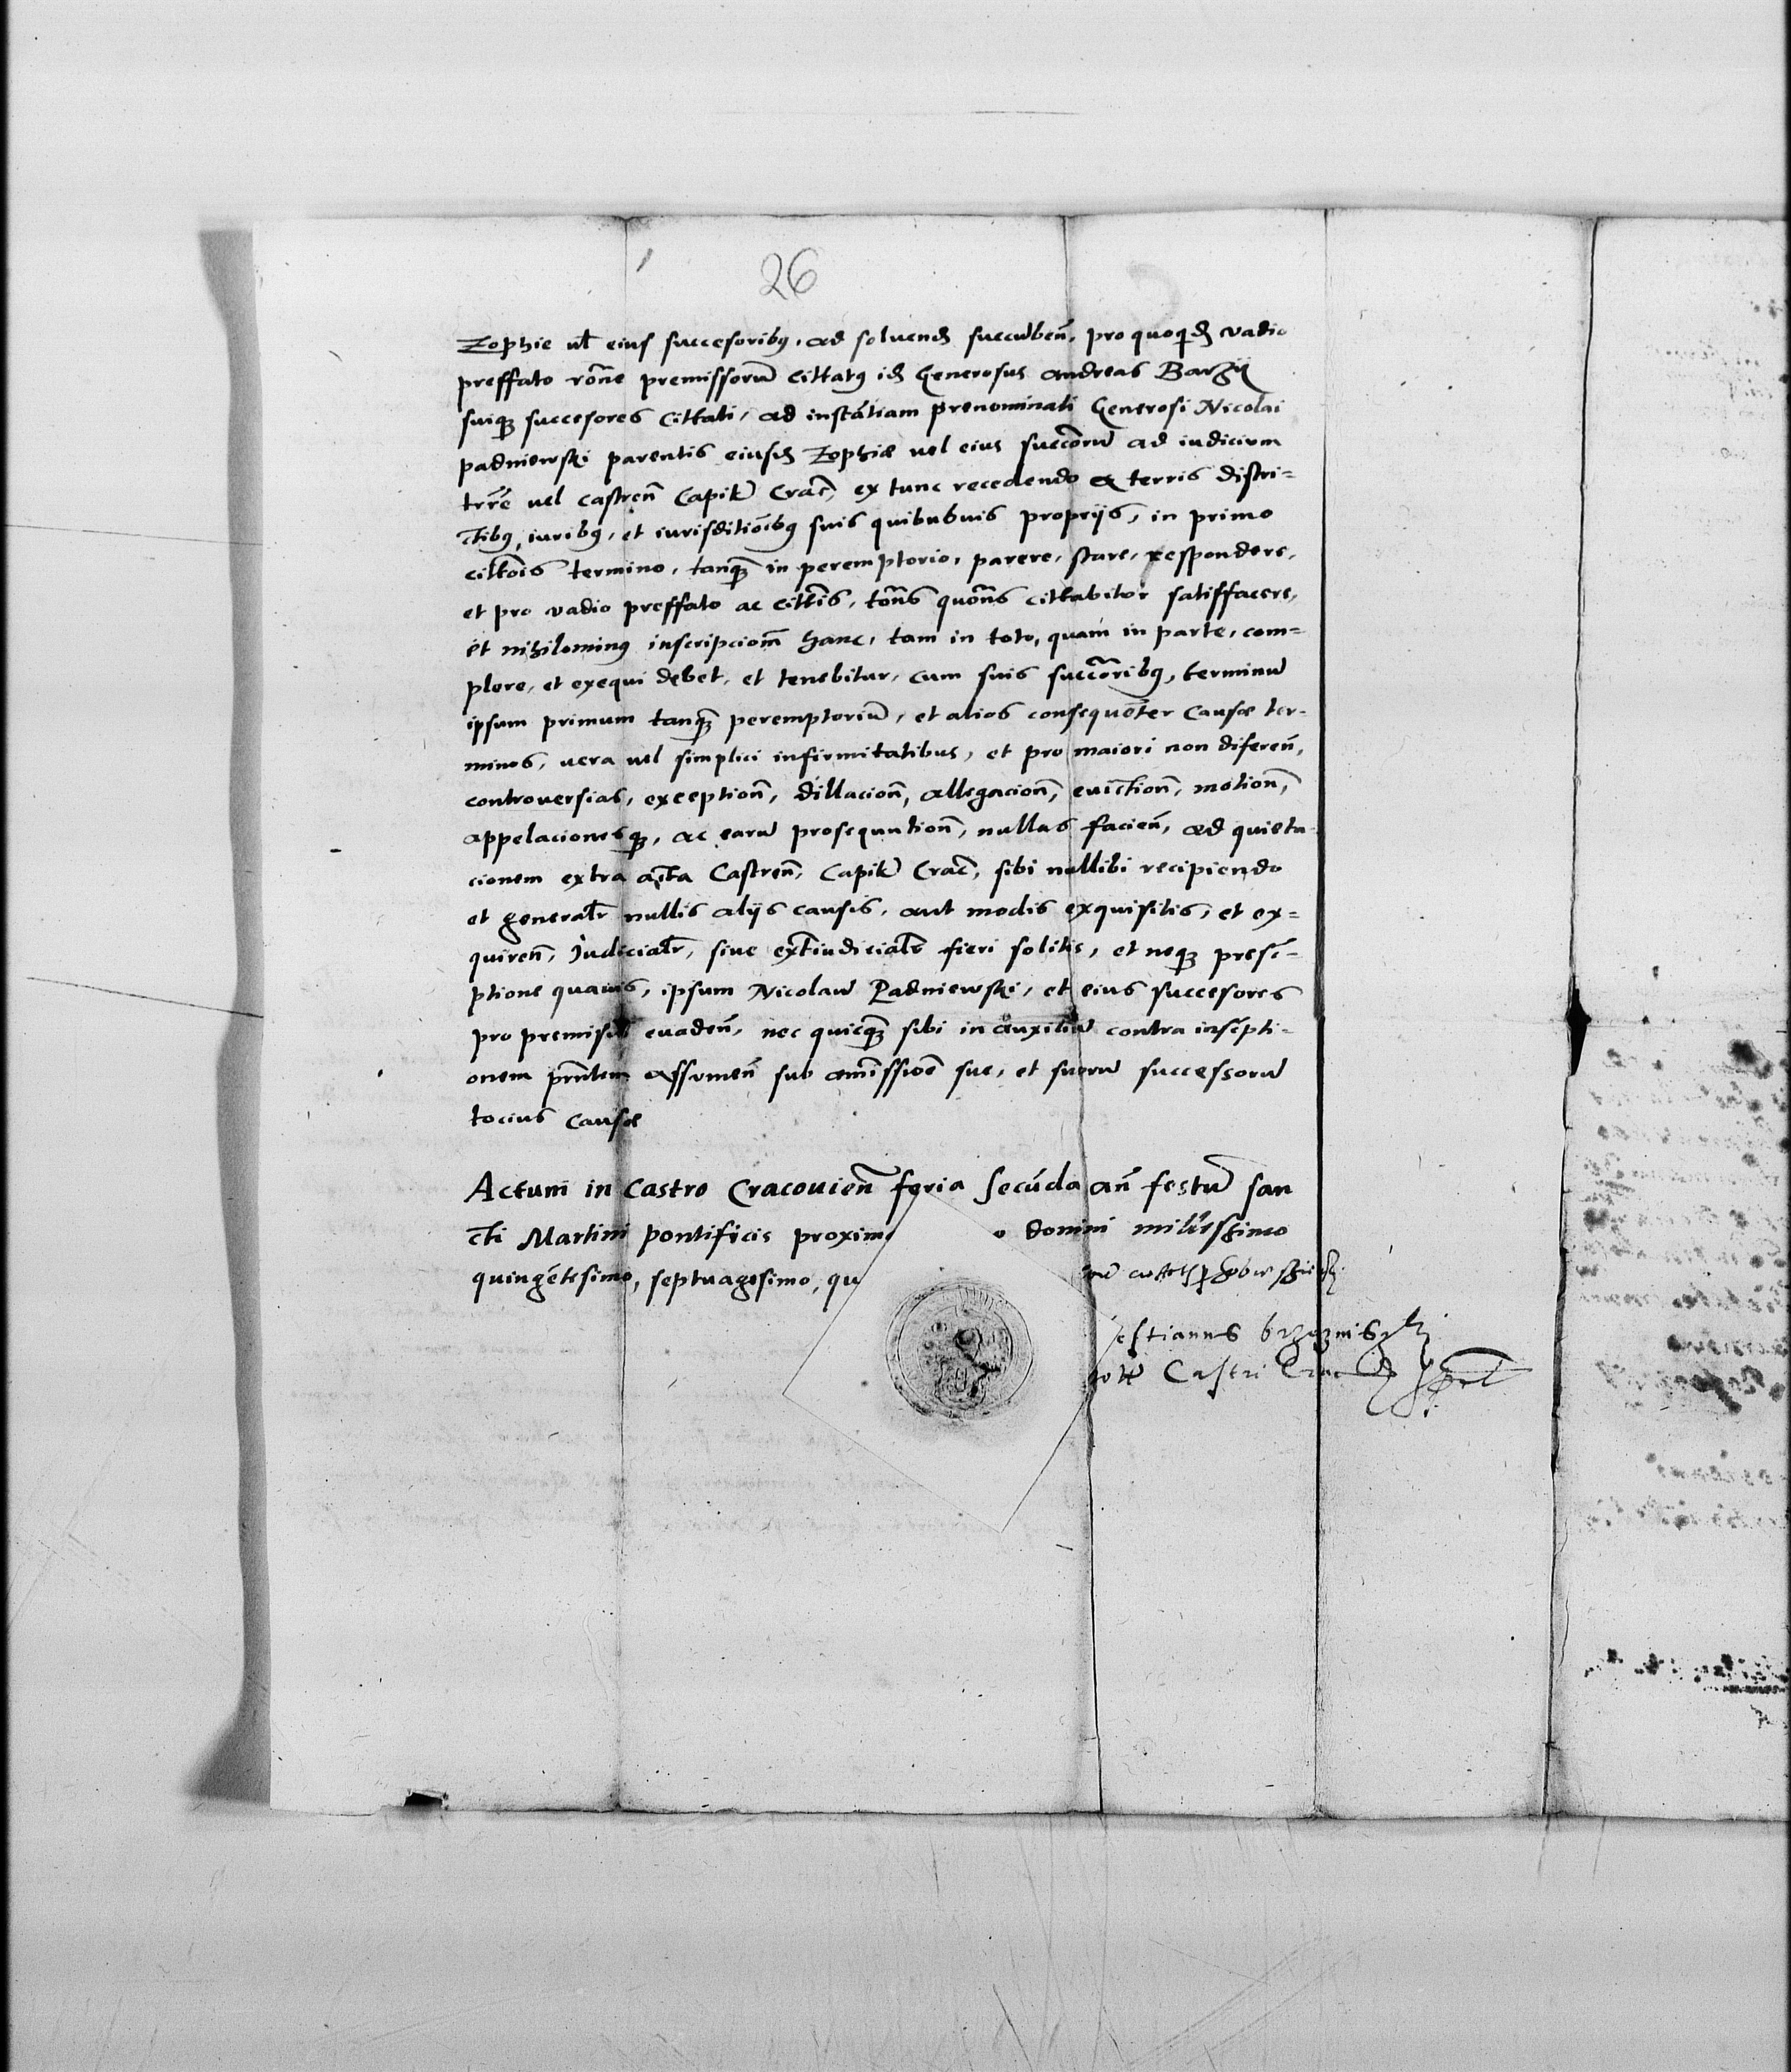 26
Zophie ul eius succesoribus, ad soluend succubeñ, pro quoquid vadio
preffato rõne premissorũ cittatus id Generosus Andreas Barzii
suiqz succesores cittati, ad instãtiam prenominati Generosi Nicolai
padniewski parentis eiusd Zophiæ uel eius succorũ ad iudicium
trre uel castreñ Capitũ Crac, ex tunc recedendo a terris distri=
ctibus, iuribus, et iurisditiõibus suis quibubuis proprijs, in primo
cittõis termino, tanqz in peremptorio, parere, stare, respondere,
et pro vadio preffato ac cittis, tõns quõns cittabitur satiffacere,
et nihilominus inscripcionm hanc, tam in toto, quam in parte, com=
plere, et exequi debet, et tenebitur, cum suis succõribus, terminũ
ipsum primum tanqz peremptoriũ, et alios consequẽter causæ ter-
minos, uera uel simplici infirmitatibus, et pro maiori non difereñ,
controuersias, exceptioñ, dillacioñ, allegacioñ, euictioñ, motioñ,
appelacionesqz, ac earũ prosequutioñ, nullas facieñ, ad quieta-
cionem extra acta Castreñ, Capitũ Crac, sibi nullibi recipiendo
et generalr nullis alijs causis, aut modis exquisitis, et ex=
quireñ, Iudicialr, siue extiudicialr fieri solitis, et neqz presci-
ptione quauis, ipsum Nicolaũ Padniewski, et eius succesores
pro premisis euadeñ, nec quicqz sibi in auxiliũ contra inscpti-
onem prñtem assumeñ sub amissiõe sue, et suorũ successorũ
tocius causæ
Actum in Castro Cracouieñ feria secũda añ festũ san
cti Martini pontificis proxim o domini millessimo
quingẽtesimo, septuagesimo, qu
estianus brzeznisky
Castri Crac